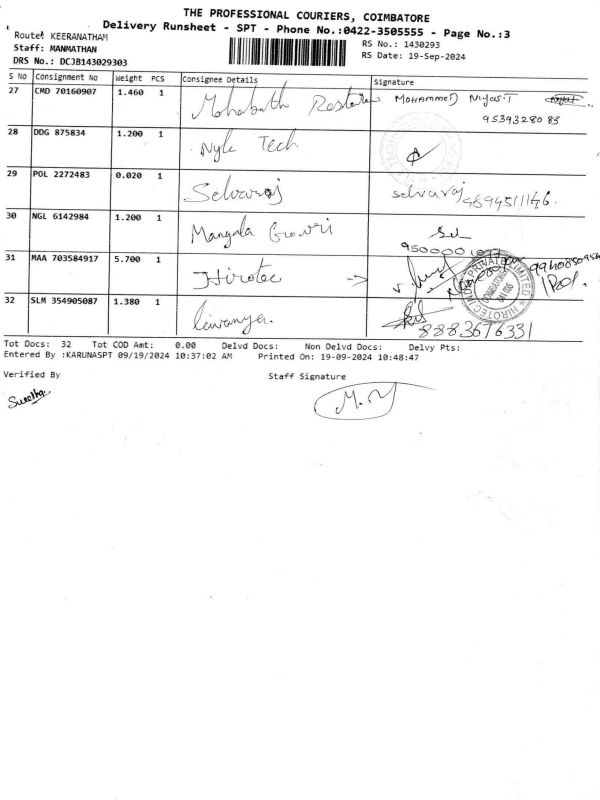 THE PROFESSIONAL COURIERS, COIMBATORE
Delivery Runsheet - SPT - Phone No.:0422-3505555 - Page No.:3
Route: KEERANATHAM
RS No.: 1430293
Staff: MANMATHAN
RS Date: 19-Sep-2024
DRS No.: DCJB143029303
S No Consignment No Weight PCS Consignee Details Signature
27 CMD 70160907 1.460 1 MOHAMMED Niyas T
9539328083
28 DDG 875834 1.200 1 Nyle Tech
29 POL 2272483 0.020 1 Selvaraj selvaraj 9894511146
30 NGL 6142984 1.200 1 Mangala Gowri
31 MAA 703584917 5.700 1 Hirotec →
32 SLM 354905087 1.380 1 8883676331
Tot Docs: 32 Tot COD Amt: 0.00 Delvd Docs: Non Delvd Docs: Delvy Pts:
Entered By :KARUNASPT 09/19/2024 10:37:02 AM Printed On: 19-09-2024 10:48:47
Verified By Staff Signature